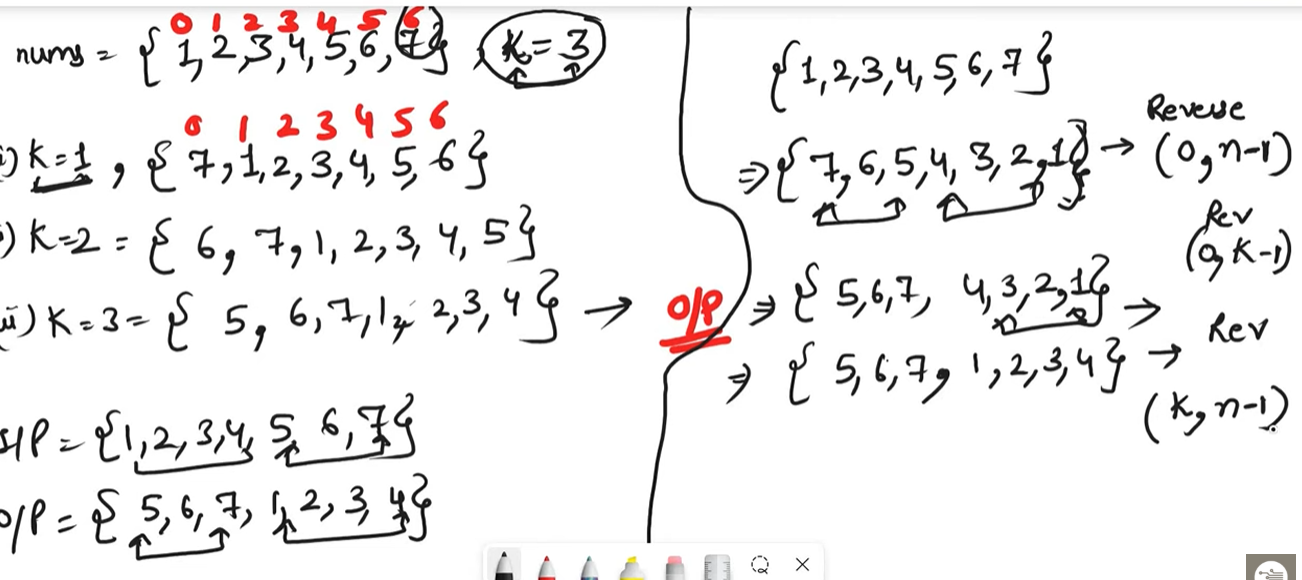 0 1 2 3 4 5 6
nums = {1,2,3,4,5,6,7}, K=3
0 1 2 3 4 5 6
i) K=1, {7,1,2,3,4,5,6}
) K=2 = {6,7,1,2,3,4,5}
iii) K=3= {5,6,7,1,2,3,4} → O/P
I/P = {1,2,3,4,5,6,7}
O/P = {5,6,7,1,2,3,4}
{1,2,3,4,5,6,7}
⇒ {7,6,5,4,3,2,1} → Reverse
(0,n-1)
Rev
(0,K-1)
⇒ {5,6,7, 4,3,2,1} →
Rev
⇒ {5,6,7,1,2,3,4} →
(K,n-1)